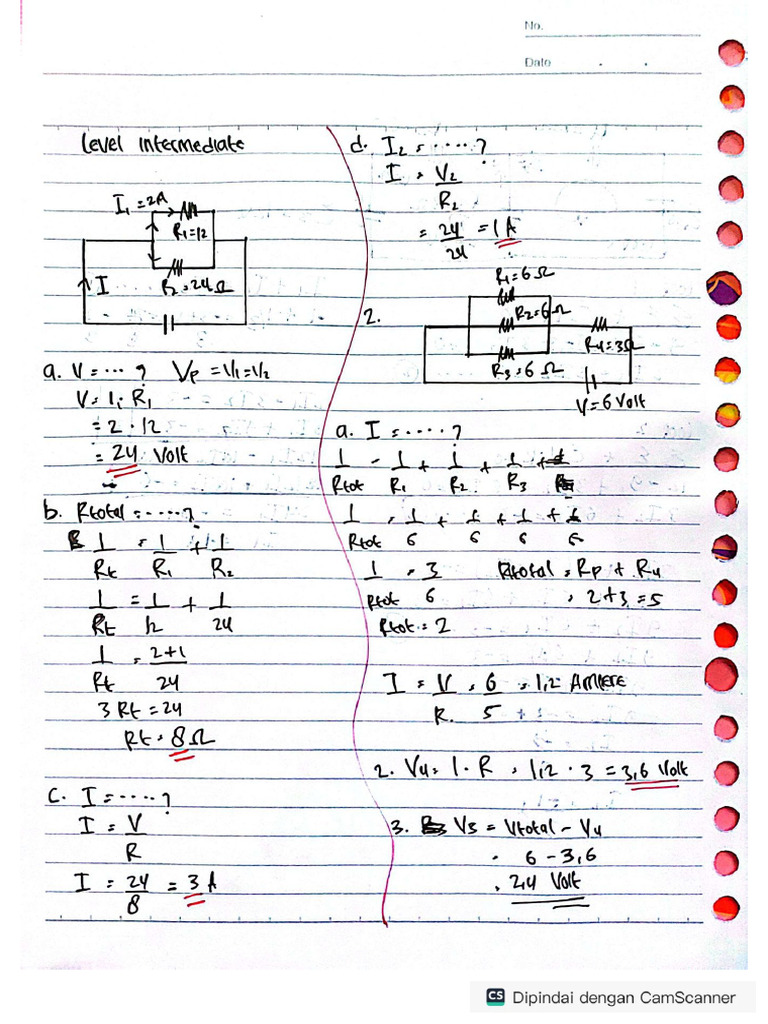 No.
Date
Level Intermediate
I₁ = 2A
R₁ = 12
I
R₂ = 24 Ω
a. V = ... ? Vp = V₁ = V₂
V = I₁ R₁
= 2 . 12
= 24 Volt
b. Rtotal = ....?
1/Rt = 1/R₁ + 1/R₂
1/Rt = 1/12 + 1/24
1/Rt = 2+1/24
3 Rt = 24
Rt = 8 Ω
C. I = ....?
I = V/R
I = 24/8 = 3 A
d. I₂ = ....?
I = V₂/R₂
= 24/24 = 1 A
2.
R₁ = 6 Ω
R₂ = 6 Ω
R₃ = 6 Ω
R4 = 3 Ω
V = 6 Volt
a. I = ....?
1/Rtot = 1/R₁ + 1/R₂ + 1/R₃
1/Rtot = 1/6 + 1/6 + 1/6
1/Rtot = 3/6 Rtotal = Rp + R4
Rtot = 2 = 2+3 = 5
I = V/R = 6/5 = 1,2 Ampere
2. V4 = I . R = 1,2 . 3 = 3,6 Volt
3. V3 = Vtotal - V4
= 6 - 3,6
= 2,4 Volt
CS Dipindai dengan CamScanner